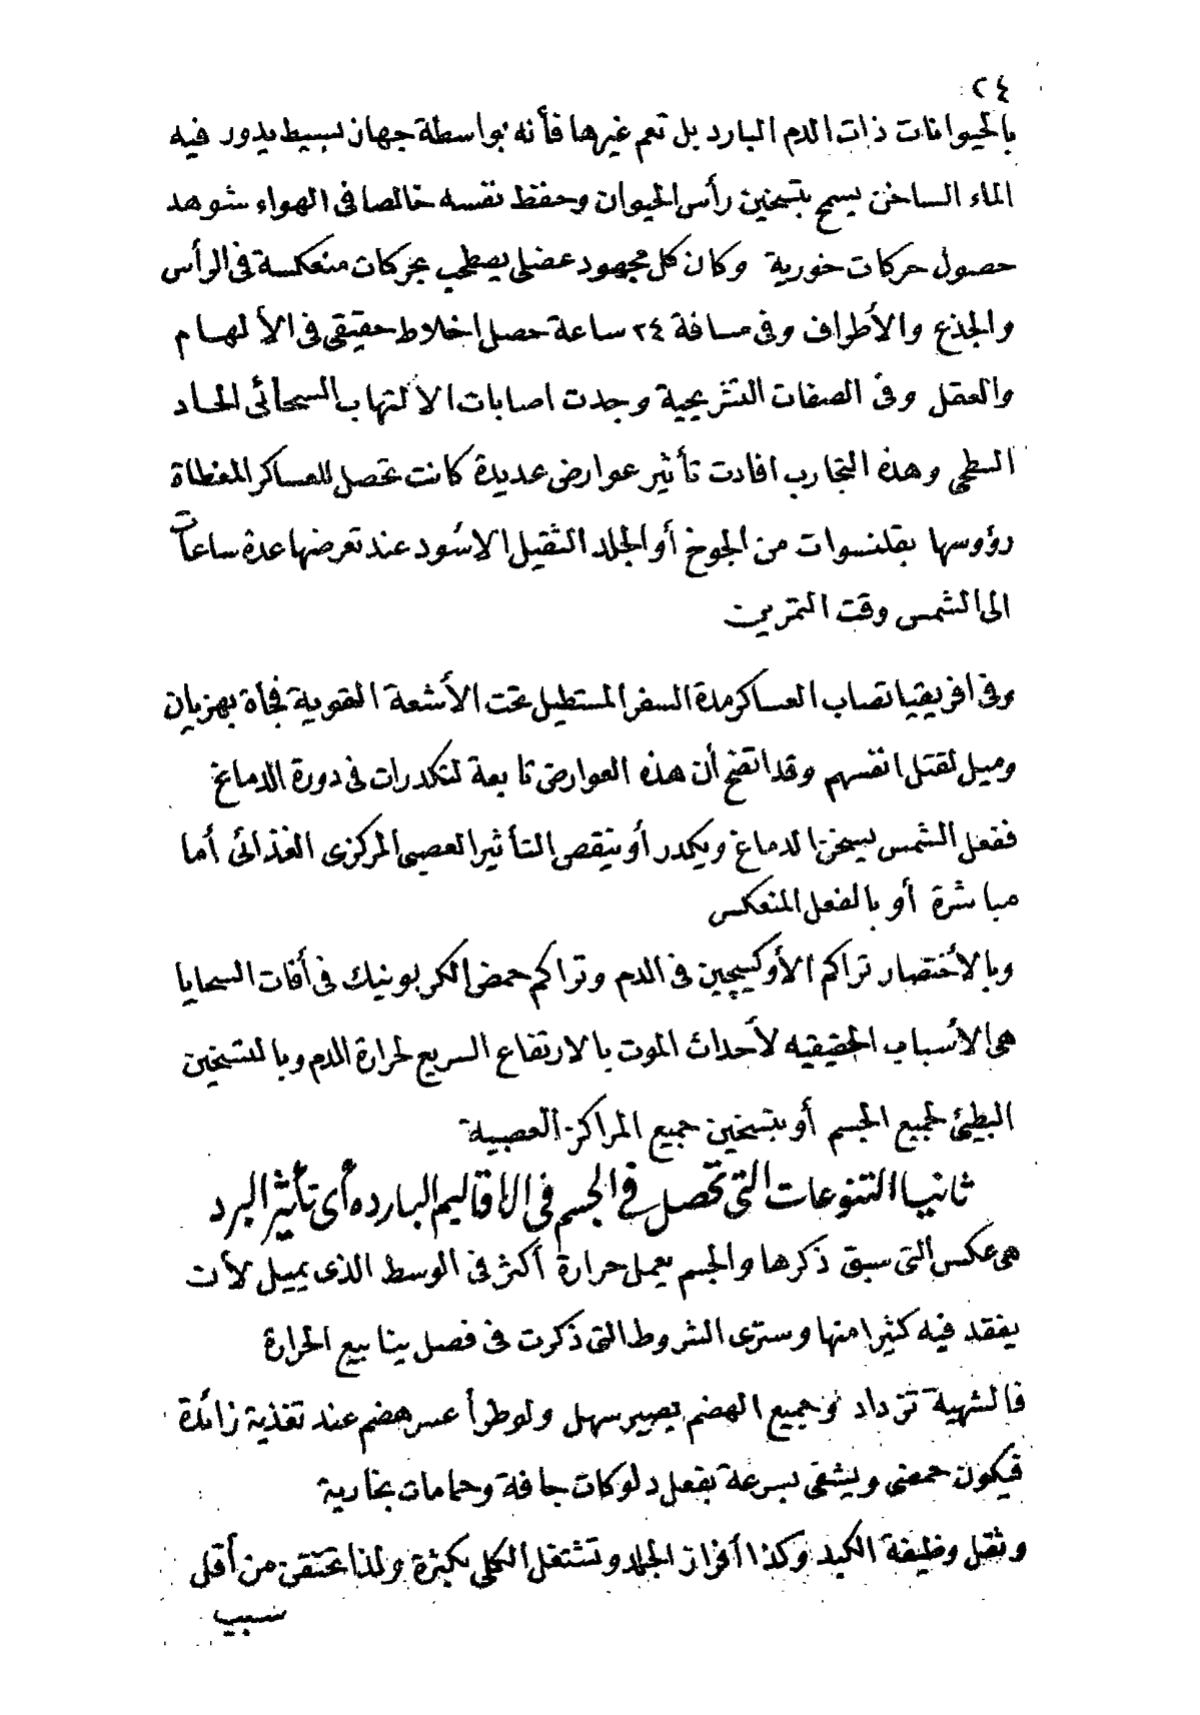 ٢٤
بالحيوانات ذات الدم البارد بل تعم غيرها فأنه بواسطة جهاز بسيط يدور فيه
الماء الساخن يسمح بتسخين رأس الحيوان وحفظ نفسه خالصا فى الهواء شوهد
حصول حركات خورية وكان كل مجهود عضلى يصطحب بحركات منعكسة فى الرأس
والجذع والأطراف وفى مسافة ٢٤ ساعة حصل اخلاط حقيقى فى الألهام
والعقل وفى الصفات التشريحية وجدت اصابات الالتهاب السحائى الحاد
السطحى وهذه التجارب افادت تأثير عوارض عديدة كانت تحصل للعساكر المغطاة
رؤوسها بقلنسوات من الجوخ أو الجلد الثقيل الاسود عند تعرضها عدة ساعات
الى الشمس وقت التمرين
وفى افريقيا تصاب العساكر مدة السفر المستطيل تحت الأشعة القوية فجأة بهزيان
وميل لقتل انفسهم وقد اتضح أن هذه العوارض تابعة لتكدرات فى دورة الدماغ
ففعل الشمس يسخن الدماغ ويكدر أو ينقص التأثير العصبى المركزى الغذائى أما
مباشرة أو بالفعل المنعكس
وبالأختصار تراكم الأوكسيجين فى الدم وتراكم حمض الكربونيك فى أفات السحايا
هى الأسباب الحقيقيه لأحداث الموت بالارتفاع السريع لحرارة الدم وبالتسخين
البطيئ لجميع الجسم أو بتسخين جميع المراكز العصبية
ثانيا التنوعات التى تحصل فى الجسم فى الاقاليم البارده أى تأثير البرد
هى عكس التى سبق ذكرها والجسم يعمل حرارة أكثر فى الوسط الذى يميل لأن
يفقد فيه كثيرا منها وسترى الشروط التى ذكرت فى فصل ينابيع الحرارة
فالشهية تزداد وجميع الهضم يصير سهل ولو طرأ عسر هضم عند تغذية زائدة
فيكون حمضى ويشفى بسرعة بفعل دلوكات جافة وحمامات بخارية
وثقل وظيفة الكبد وكذا أفراز الجلد وتشتغل الكلى بكثرة ولذا تحتقن من أقل
سبب